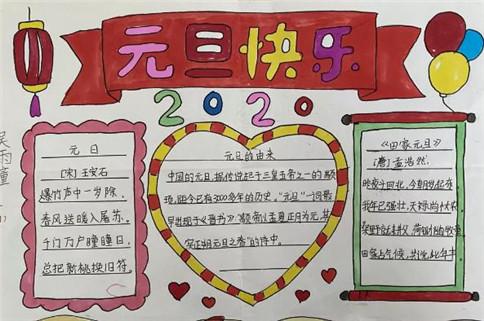 元旦快乐
2020
吴雨
元日
[宋] 王安石
爆竹声中一岁除
春风送暖入屠苏
千门万户瞳瞳日
总把新桃换旧符
元旦的由来
中国的元旦,据传说起于三皇五帝之一的颛
顼,距今已有3000多年的历史。"元旦"一词最
早出现于《晋书》:"颛帝以孟夏正月为元,其
实正朔元旦之春"的诗中。
《田家元旦》
[唐]孟浩然
昨夜斗回北,今朝岁起东
我年已强壮,无禄尚忧农
桑野就耕父,荷锄随牧童
田家占气候,共说此年丰